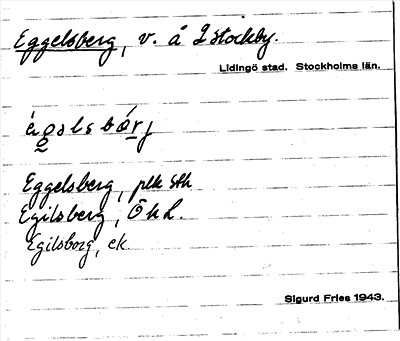 Eggelsberg, v. å L stockby.
Lidingö stad. Stockholms län.
Eggelsberg, plk Sth
Egilsberg, ÖhL.
Egilsborg, ek.
Sigurd Fries 1943.